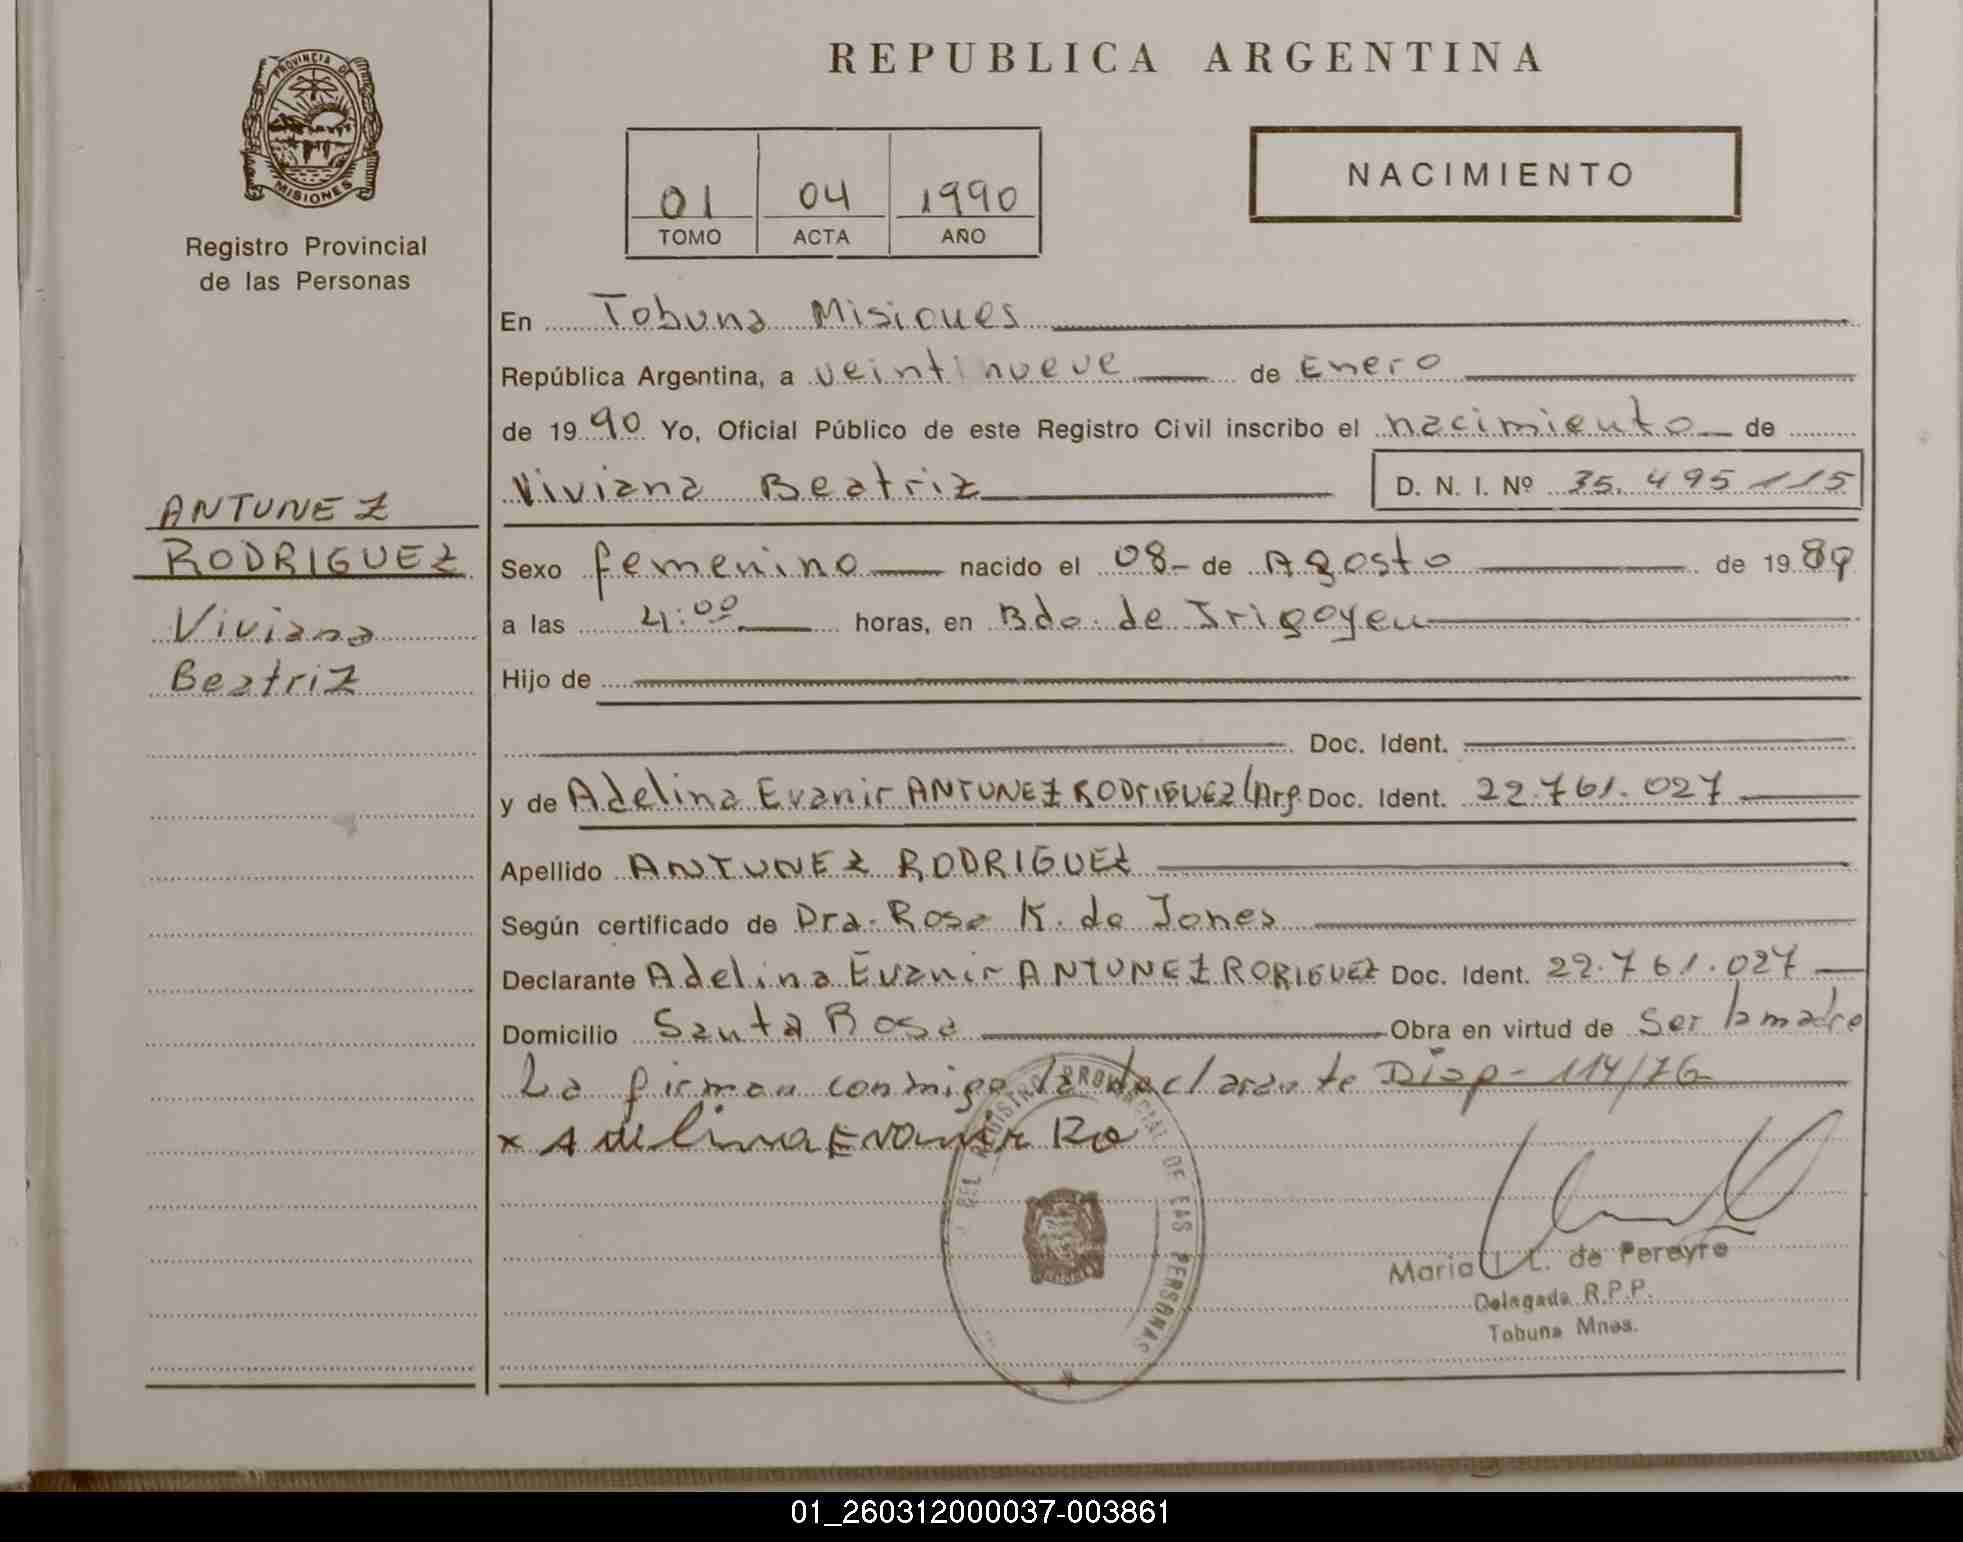 REPUBLICA ARGENTINA
PROVINCIA DE
MISIONES
Registro Provincial
de las Personas
01 04 1990
TOMO ACTA AÑO
NACIMIENTO
ANTUNEZ
RODRIGUEZ
Viviana
Beatriz
En Tobuna Misiones
República Argentina, a veintinueve de Enero
de 1990 Yo, Oficial Público de este Registro Civil inscribo el nacimiento de
Viviana Beatriz D. N. I. Nº 35.495115
Sexo femenino nacido el 08- de Agosto de 1989
a las 4:00 horas, en Bdo. de Irigoyen
Hijo de
Doc. Ident.
y de Adelina Evanir ANTUNEZ RODRIGUEZ (Arg. Doc. Ident. 22.761.027
Apellido ANTUNEZ RODRIGUEZ
Según certificado de Dra. Rosa K. de Jones
Declarante Adelina Evanir ANTUNEZ RORIGUEZ Doc. Ident. 22.761.027
Domicilio Santa Rosa Obra en virtud de Ser la madre
La firman conmigo la declarante Disp- 114/76
x Adelina Evanir Ro
DEL REGISTRO PROVINCIAL DE LAS PERSONAS
Maria L. de Pereyra
Delegada R.P.P.
Tobuna Mnes.
01_260312000037-003861